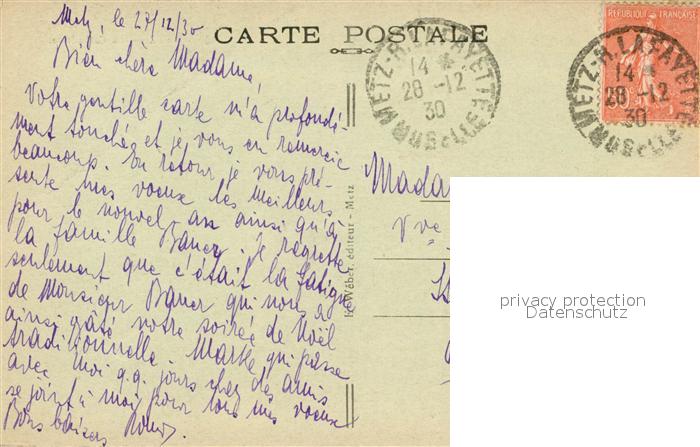 Metz, le 27/12/30
CARTE POSTALE
Bien chère Madame,
Votre gentille carte m'a profondé-
ment touchée et je vous en remercie
beaucoup. En retour, je vous pré-
sente mes voeux les meilleurs
pour le nouvel-an ainsi qu'à
la famille Bauer. Je regrette
seulement que c'était la fatigue
de Monsieur Bauer qui nous a
ainsi gâté votre soirée de Noël
traditionnelle. Marthe qui passe
avec moi q.q. jours chez des amis
se joint à moi pour tous mes voeux
Bons baisers
METZ-R.LAFAYETTE
14 *
28 -12
30
MOSELLE
REPUBLIQUE FRANÇAISE
METZ-R.LAFAYETTE
14 *
28 -12
30
MOSELLE
Wéber, éditeur - Metz
Mada
Vve
privacy protection
Datenschutz